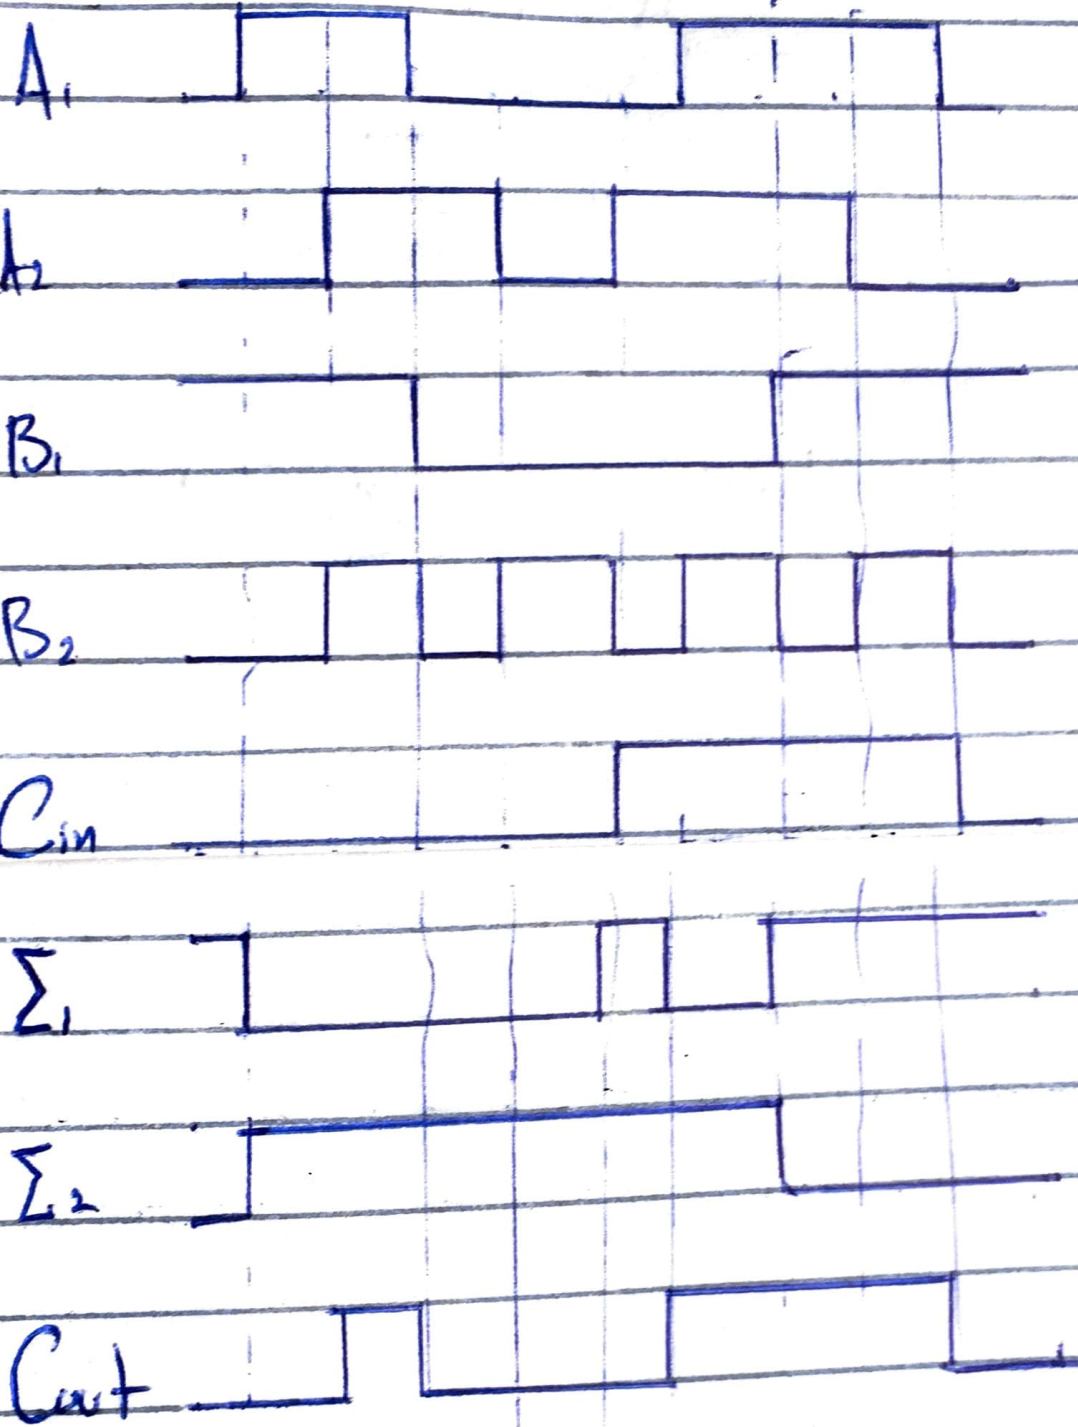 A₁
A₂
B₁
B₂
Cin
Σ₁
Σ₂
Cout